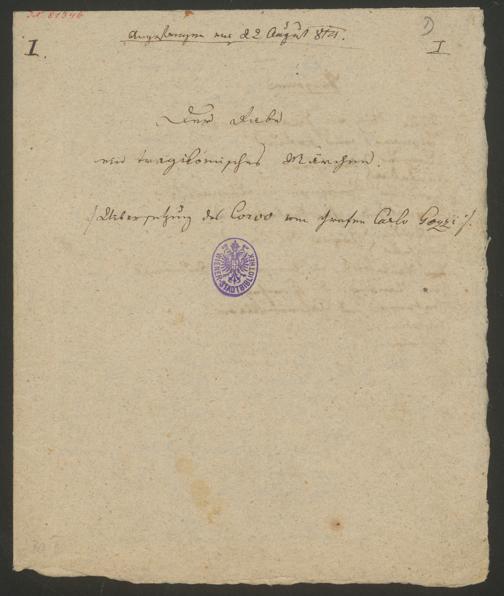 I.N. 81346
D
I.
Angefangen am d 2 August
I
Der Rabe
ein tragikomisches Märchen.
/: Uebersetzung des Corvo vom Grafen Carlo Gozzi :/.
WIENER STADTBIBLIOTHEK